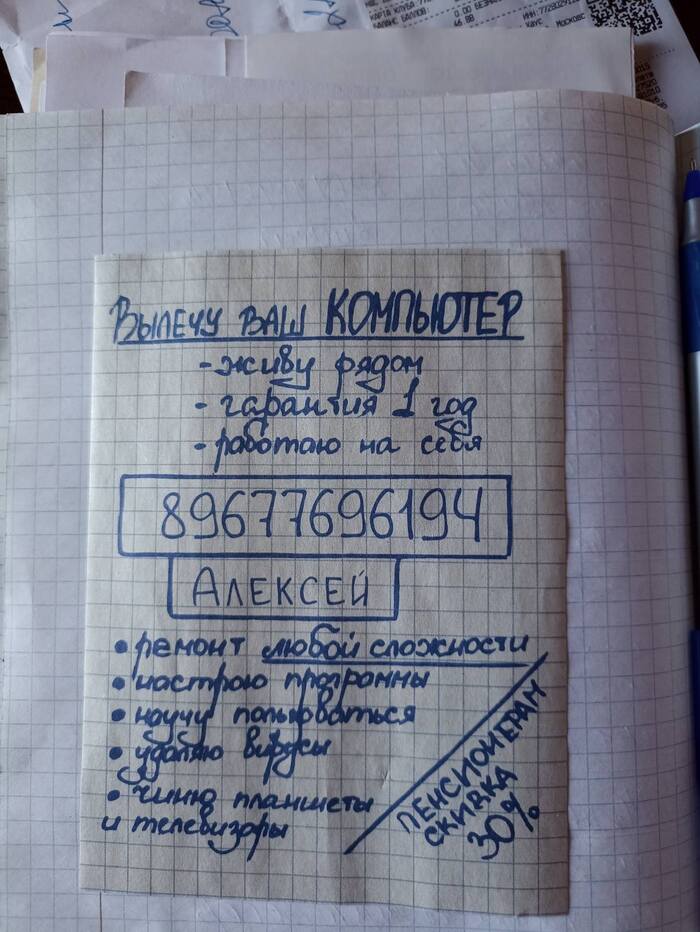 КАРТА КЛУБА
БАЛАНС БАЛЛОВ:
0.00 БЕЗНАЛ
МОСКОВС
Вылечу ваш КОМПЬЮТЕР
- живу рядом
- гарантия 1 год
- работаю на себя
89677696194
АЛЕКСЕЙ
• ремонт любой сложности
• настрою программы
• научу пользоваться
• удаляю вирусы
• чиню планшеты
и телевизоры
ПЕНСИОНЕРАМ
СКИДКА
30%